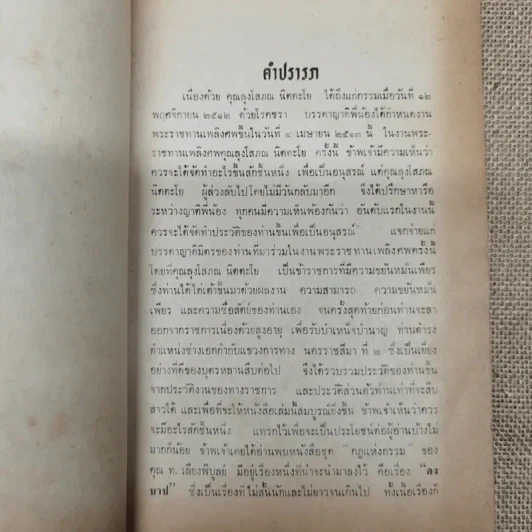 คำปรารภ
เนื่องด้วย คุณลุงโสภณ นิตตะโย ได้ถึงแก่กรรมเมื่อวันที่ ๑๒
พฤศจิกายน ๒๕๑๒ ด้วยโรคชรา บรรดาญาติพี่น้องได้กำหนดงาน
พระราชทานเพลิงศพขึ้นในวันที่ ๔ เมษายน ๒๕๑๓ นี้ ในงานพระ-
ราชทานเพลิงศพคุณลุงโสภณ นิตตะโย ครั้งนี้ ข้าพเจ้ามีความเห็นว่า
ควรจะได้จัดทำอะไรขึ้นสักชิ้นหนึ่ง เพื่อเป็นอนุสรณ์ แด่คุณลุงโสภณ
นิตตะโย ผู้ล่วงลับไปโดยไม่มีวันกลับมาอีก จึงได้ปรึกษาหารือ
ระหว่างญาติพี่น้อง ทุกคนมีความเห็นพ้องกันว่า อันดับแรกในงานนี้
ควรจะได้จัดทำประวัติของท่านขึ้นเพื่อเป็นอนุสรณ์ แจกจ่ายแก่
บรรดาญาติมิตรของท่านที่มาร่วมในงานพระราชทานเพลิงศพครั้งนี้
โดยที่คุณลุงโสภณ นิตตะโย เป็นข้าราชการที่มีความขยันหมั่นเพียร
ซึ่งท่านได้ไต่เต้าขึ้นมาด้วยผลงาน ความสามารถ ความขยันหมั่น
เพียร และความซื่อสัตย์ของท่านเอง จนครั้งสุดท้ายก่อนท่านจะลา
ออกจากราชการเนื่องด้วยสูงอายุ เพื่อรับบำเหน็จบำนาญ ท่านดำรง
ตำแหน่งช่างเอกกำกับแขวงการทาง นครราชสีมา ที่ ๒ ซึ่งเป็นเยี่ยง
อย่างที่ดีของบุตรหลานสืบต่อไป จึงได้รวบรวมประวัติของท่านขึ้น
จากประวัติงานของทางราชการ และประวัติส่วนตัวท่านเท่าที่จะสืบ
สาวได้ และเพื่อที่จะให้หนังสือเล่มนี้สมบูรณ์ยิ่งขึ้น ข้าพเจ้าเห็นว่าควร
จะมีอะไรสักชิ้นหนึ่ง แทรกไว้เพื่อจะเป็นประโยชน์ต่อผู้อ่านบ้างไม่
มากก็น้อย ข้าพเจ้าเคยได้อ่านพบหนังสือชุด "กฎแห่งกรรม" ของ
คุณ ท. เลียงพิบูลย์ มีอยู่เรื่องหนึ่งที่น่าจะนำมาลงไว้ คือเรื่อง "ลง
บาป" ซึ่งเป็นเรื่องที่ไม่สั้นนักและไม่ยาวจนเกินไป ทั้งเนื้อเรื่องก็